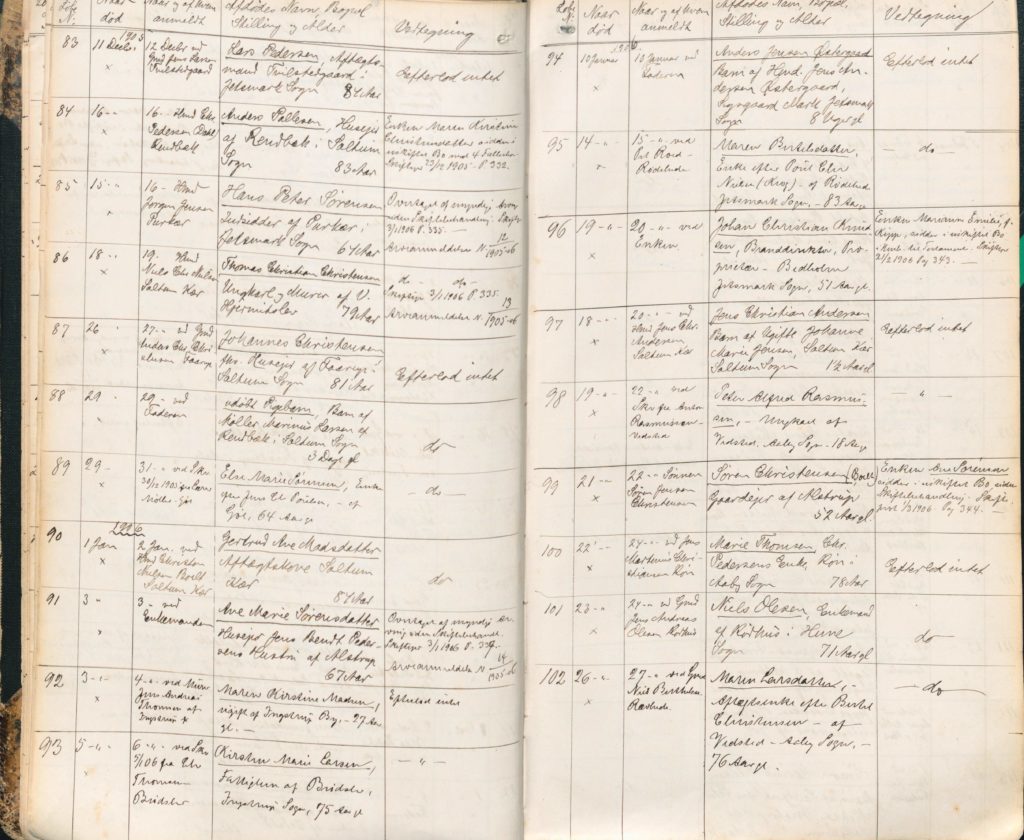 Naar død
Naar og af hvem anmeldt
Afdødes Navn, Bopæl
Stilling og Alder
Vedtegning
83
1905
11 Decbr
12 Decbr ved
Gmd Jens Larsen
Lars Pedersen, Aftægts-
mand
Jetsmark Sogn 84 Aar
Efterlod intet
84
16 - "
16 - Hmd Chr
Pedersen Dahl
Rendbæk
Anders Pallesen, Husejer
af Rendbæk i Saltum
Sogn
83 Aar
Enken Maren Kirstine
Christensdatter sidder i
uskiftet Bo med 4
Skiftepr 23/12 1905 - P. 332.
85
15 "
16 - Hmd
Jørgen Jensen
Purkær
Hans Peter Sørensen
Indsidder af Purkær i
Jetsmark Sogn 64 Aar
Overtaget af myndige
uden Skiftebehandling - Skiftepr
3/1 1906 P. 335. -
Arveanmeldelse N. 12/1905-06
86
18 "
19. Hmd
Niels Chr Nielsen
Saltum Kær
Thomas Christian Christensen
Ungkarl og Murer af V.
Hjermitslev 79 Aar
do - do -
Skiftepr 3/1 1906 P. 335.
Arveanmeldelse N. 13/1905-06
87
26 "
27 - " ved Gmd
Faarup
Johannes Christensen
fhv. Husejer af Faarup i
Saltum Sogn 81 Aar
Efterlod intet
88
29 "
29 - ved
Faderen
udøbt Pigebarn, Barn af
Møller Marinus Larsen af
Rendbæk i Saltum Sogn
3 Dage gl
do
89
29 -
31 - " ved Skr
30/12 1905 fra
Else Marie Sørensen, Enke
Gjøl, 64 Aar gl
- do -
90
1906
1 Jan
2 Jan. ved
Hmd Christen
Nielsen Bolt
Saltum Kær
Gertrud Ane Madsdatter
Aftægtskone Saltum
Kær
84 Aar
do
91
3 "
3 - ved
Enkemanden
Ane Marie Sørensdatter
Husejer Jens Bendt Peder-
sens Hustru af Alstrup
67 Aar
Overtaget af myndige Ar-
ving uden Skiftebehandl.
Skiftepr 3/1 1906 P. 334.
Arveanmeldelse N. 14/1905-6
92
3 - "
4 - " ved
Jens Andreas
Thomsen af
Ingstrup
Maren Kirstine Madsen,
ugift af Ingstrup By, - 27 Aar
gl. -
Efterlod intet
93
5 - "
6 - " ved Skr
5/1 06 fra Chr
Thomsen
Brødslev
Kirsten Marie Larsen,
Fattiglem af Brødslev,
Ingstrup Sogn, 75 Aar gl
- " -
Naar død
Naar og af hvem anmeldt
Afdødes Navn, Bopæl,
Stilling og Alder
Vedtegning
94
1906
10 Januar
10 Januar ved
Faderen
Anders Jensen Østergaard
Barn af Hmd. Jens An-
dersen Østergaard,
Kysgaard Mark Jetsmark
Sogn 8 Uger gl
Efterlod intet
95
14 - "
15 - " ved
Rødelund
Maren Bertelsdatter,
Enke efter Poul Chr
Nielsen (Krog) - af Rødelund
Jetsmark Sogn, - 83 Aar
- do -
96
19 - "
20 - " ved
Enken
Johan Christian Knud-
sen, Branddirektør, Pro-
prietær - Bedholm
Jetsmark Sogn, 51 Aar gl.
Enken Mariane Emilie f.
sidder i uskiftet Bo
Testamente - Skiftepr
21/2 1906 Pg 343. -
97
18 - "
20 - " ved
Hmd Jens Chr.
Andersen
Saltum Kær
Jens Christian Andersen
Barn af Ugifte Johanne
Marie Jensen, Saltum Kær
Saltum Sogn 1½ Aar gl
Efterlod intet
98
19 - "
22 - " ved
Skr fra Anton
Rasmussen -
Vedsted
Peter Alfred Rasmus-
sen, - Ungkarl af
Vedsted, Aaby Sogn - 18 Aar gl
- " -
99
21 - "
22 - " Sønnen
Søren Jensen
Christensen
Søren Christensen (Bolt)
Gaardejer af Alstrup
52 Aar gl.
Enken Ane Sørensen
sidder i uskiftet Bo uden
Skiftebehandling - Skifte-
prot 1/3 1906 Pg 344. -
100
22 - "
24 - " ved Jens
Martinus Chri-
stiansen Røn
Marie Thomsen Chr.
Pedersens Enke Røn i
Aaby Sogn 78 Aar
Efterlod intet
101
23 - "
24 - " ved Gmd
Jens Andreas
Olesen Rødhus
Niels Olesen, Enkemand
af Rødhus i Hune
Sogn 71 Aar gl
do
102
26 - "
27 - " ved Gmd
Niels Bertelsen
Kaslunde
Maren Larsdatter, -
Aftægtsenke efter Bertel
Christensen - af
Vedsted - Aaby Sogn, -
76 Aar gl.
- do -